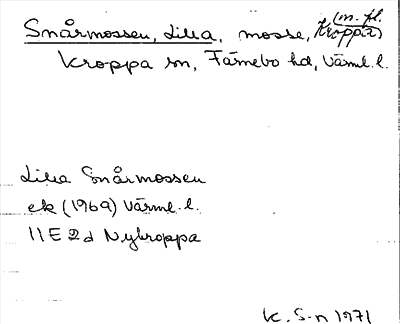 Snårmossen, Lilla, mosse, Kroppa (m. fl.)
Kroppa sn, Färnebo hd, Värml. l.
Lilla Snårmossen
ek (1969) Värml. l.
11E2d Nykroppa
K. S-n 1971